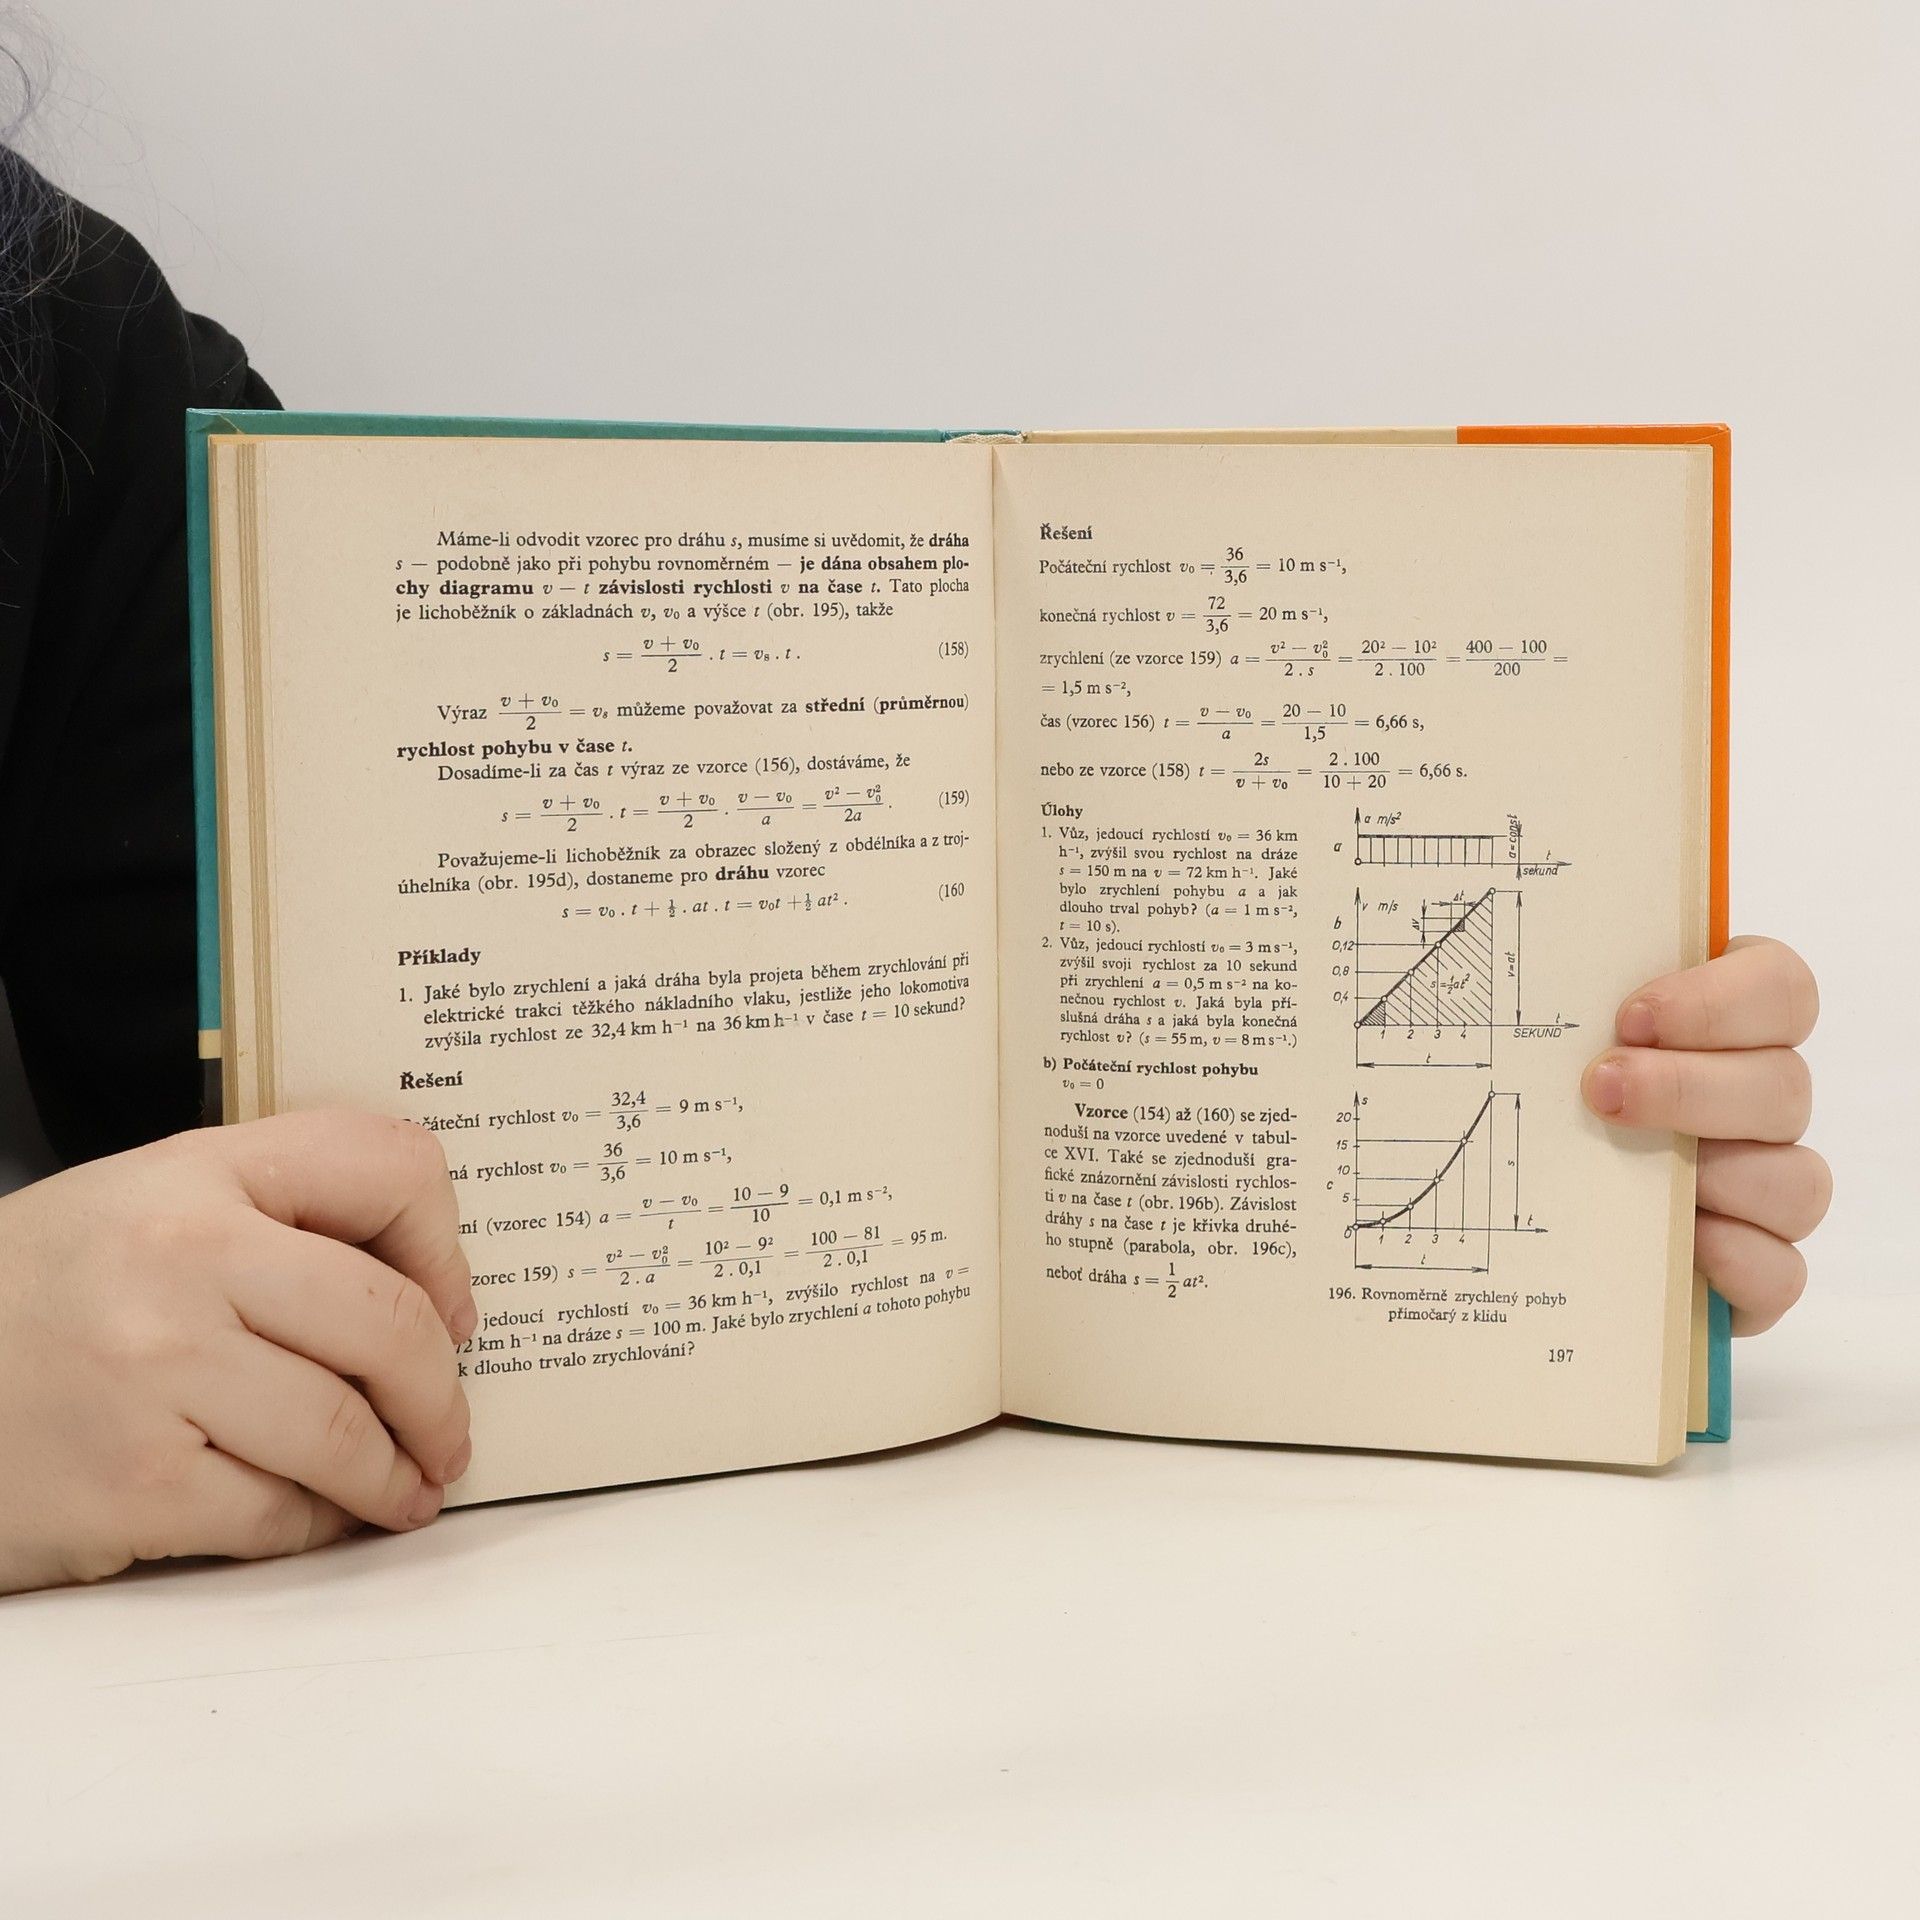 Máme-li odvodit vzorec pro dráhu s, musíme si uvědomit, že dráha
s — podobně jako při pohybu rovnoměrném — je dána obsahem plo-
chy diagramu v — t závislosti rychlosti v na čase t. Tato plocha
je lichoběžník o základnách v, v₀ a výšce t (obr. 195), takže
s = (v + v₀)/2 . t = vₛ . t . (158)
Výraz (v + v₀)/2 = vₛ můžeme považovat za střední (průměrnou)
rychlost pohybu v čase t.
Dosadíme-li za čas t výraz ze vzorce (156), dostáváme, že
s = (v + v₀)/2 . t = (v + v₀)/2 . (v — v₀)/a = (v² — v₀²)/2a . (159)
Považujeme-li lichoběžník za obrazec složený z obdélníka a z troj-
úhelníka (obr. 195d), dostaneme pro dráhu vzorec
s = v₀ . t + ½ . at . t = v₀t + ½ at² . (160
Příklady
1. Jaké bylo zrychlení a jaká dráha byla projeta během zrychlování při
elektrické trakci těžkého nákladního vlaku, jestliže jeho lokomotiva
zvýšila rychlost ze 32,4 km h⁻¹ na 36 km h⁻¹ v čase t = 10 sekund?
Řešení
rychlost v₀ = 32,4/3,6 = 9 m s⁻¹,
rychlost v₀ = 36/3,6 = 10 m s⁻¹,
(vzorec 154) a = (v — v₀)/t = (10 — 9)/10 = 0,1 m s⁻²,
159) s = (v² — v₀²)/(2 . a) = (10² — 9²)/(2 . 0,1) = (100 — 81)/(2 . 0,1) = 95 m.
jedoucí rychlostí v₀ = 36 km h⁻¹, zvýšilo rychlost na v =
km h⁻¹ na dráze s = 100 m. Jaké bylo zrychlení a tohoto pohybu
dlouho trvalo zrychlování?
Řešení
Počáteční rychlost v₀ = 36/3,6 = 10 m s⁻¹,
konečná rychlost v = 72/3,6 = 20 m s⁻¹,
zrychlení (ze vzorce 159) a = (v² — v₀²)/(2 . s) = (20² — 10²)/(2 . 100) = (400 — 100)/200 =
= 1,5 m s⁻²,
čas (vzorec 156) t = (v — v₀)/a = (20 — 10)/1,5 = 6,66 s,
nebo ze vzorce (158) t = 2s/(v + v₀) = (2 . 100)/(10 + 20) = 6,66 s.
Úlohy
1. Vůz, jedoucí rychlostí v₀ = 36 km
h⁻¹, zvýšil svou rychlost na dráze
s = 150 m na v = 72 km h⁻¹. Jaké
bylo zrychlení pohybu a a jak
dlouho trval pohyb? (a = 1 m s⁻²,
t = 10 s).
2. Vůz, jedoucí rychlostí v₀ = 3 m s⁻¹,
zvýšil svoji rychlost za 10 sekund
při zrychlení a = 0,5 m s⁻² na ko-
nečnou rychlost v. Jaká byla pří-
slušná dráha s a jaká byla konečná
rychlost v? (s = 55 m, v = 8 m s⁻¹.)
b) Počáteční rychlost pohybu
v₀ = 0
Vzorce (154) až (160) se zjed-
noduší na vzorce uvedené v tabul-
ce XVI. Také se zjednoduší gra-
fické znázornění závislosti rychlos-
ti v na čase t (obr. 196b). Závislost
dráhy s na čase t je křivka druhé-
ho stupně (parabola, obr. 196c),
neboť dráha s = 1/2 at².
a m/s²
a
a=const
t
sekund
v m/s
b
Δt
Δv
0,12
0,8
0,4
s=½at²
v=at
1 2 3 4
t
SEKUND
t
s
20
15
10
c
5
0
1 2 3 4
t
s
t
196. Rovnoměrně zrychlený pohyb
přímočarý z klidu
197